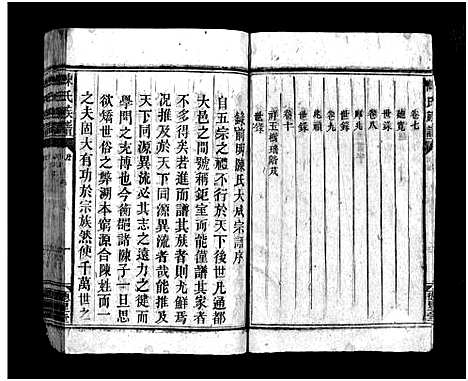 卷七
世錄
卷八
世錄
卷九
世錄
卷十
世錄
錄前明陳氏大成宗譜序
自五宗之禮不行於天下後世凡通都
大邑之間號稱鉅室而能僅譜其家者
不多得矣若進而譜其族者則尤鮮焉
況推及於天下同源異流者哉能推及
天下同源異流必其志之遠力之健而
學問之尤博也今衡陽諸陳子一旦思
欲矯世俗之弊溯本窮源合陳姓而一
之夫固大有功於宗族然使千萬世之
陳氏族譜